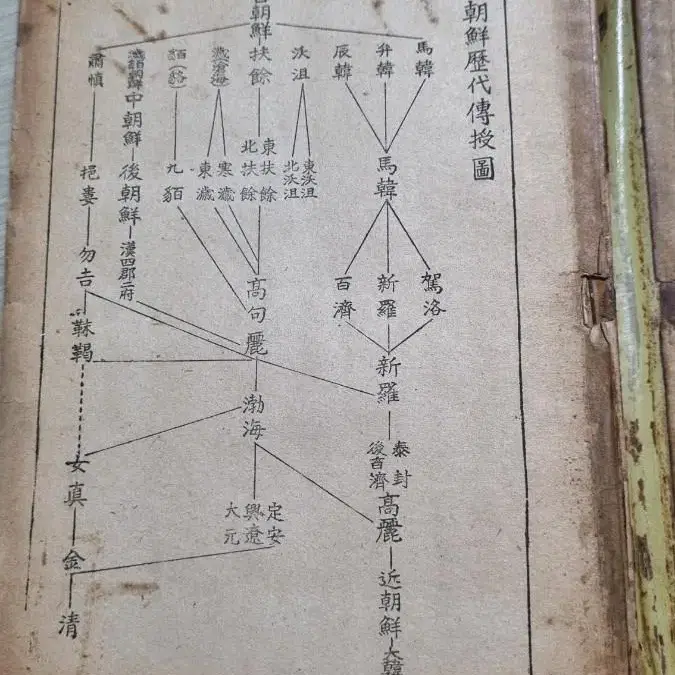 朝鮮歷代傳授圖
朝鮮
馬韓
弁韓
辰韓
沃沮
扶餘
肅慎
中朝鮮
馬韓
東沃沮
北沃沮
東扶餘
北扶餘
寒濊
東濊
九貊
後朝鮮
漢四郡二府
挹婁
駕洛
新羅
百濟
高句麗
勿吉
靺鞨
新羅
渤海
泰封
後百濟
女真
高麗
定安
興遼
大元
金
近朝鮮
大韓
清